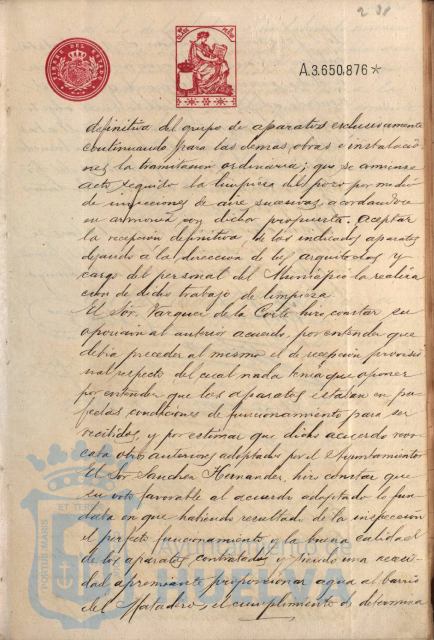 2
TIMBRE DEL ESTADO
A.3.650,876*
definitiva del grupo de aparatos exclusivamente
continuando para las demas obras é instalacio
nes la tramitacion ordinaria; que se
acto seguido la limpieza del pozo por medio
de inyecciones de aire sucesivas, acordandose
en armonía con dicha propuesta. aceptar
la recepcion definitiva, de los indicados aparatos
dejando á la direccion de los arquitectos y
cargo del personal del Municipio la realiza
cion de dicho trabajo de limpieza
El Sor. Vazquez de la Corte hizo constar su
oposicion al anterior acuerdo, por entender que
debia preceder al mismo el de recepcion provisio
nal respecto del cual nada tenia que oponer
por entender que los aparatos estaban en per
fectas condiciones de funcionamiento para ser
recibidos, y por estimar que dicho acuerdo revo
caba otro anterior, adoptado por el Ayuntamiento
El Sor Sanchez Hernandez, hizo constar que
su voto favorable al acuerdo adoptado lo fun
daba en que habiendo resultado de la inspeccion
el perfecto funcionamiento y la buena calidad
de los aparatos contratados y siendo una necesi
dad apremiante proporcionar agua al barrio
del Matadero, el cumplimiento de determina
ET TERRE
PORTUS MARIS
Ayuntamiento de
HUELVA